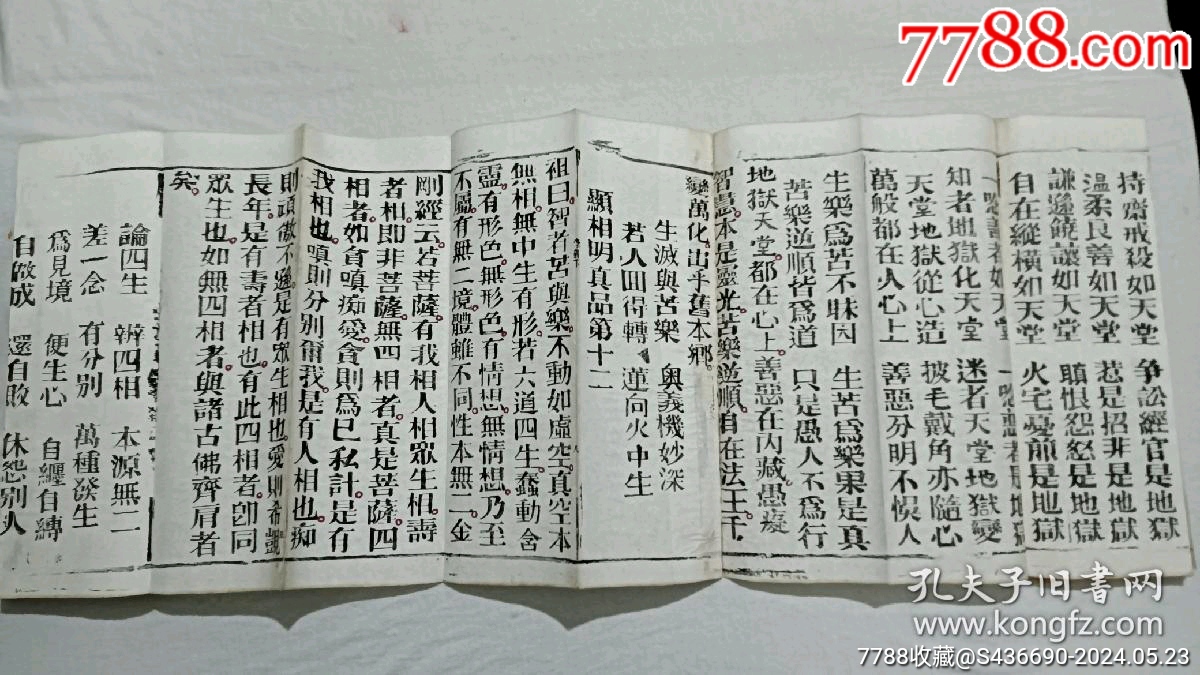 7788.com
持齋戒殺如天堂 争訟經官是地獄
溫柔良善如天堂 惹是招非是地獄
謙遜饒讓如天堂 瞋恨怨怒是地獄
自在縱橫如天堂 火宅憂煎是地獄
一念善者如天堂 一念惡者是地獄
知者地獄化天堂 迷者天堂地獄變
天堂地獄從心造 披毛戴角亦隨心
萬般都在人心上 善惡分明不悞人
生樂爲苦不昧因 生苦爲樂果是真
苦樂逆順皆爲道 只是愚人不爲行
地獄天堂都在心上善惡在内藏愚癡
智慧本是靈光苦樂逆順自在法王千
變萬化出乎舊本鄉
生滅與苦樂 奥義機妙深
若人回得轉 蓮向火中生
顯相明真品第十二
祖曰智者苦與樂不動如虛空真空本
無相無中生有形若六道四生蠢動含
靈有形色無形色有情想無情想乃至
不屬有無二境體雖不同性本無二金
剛經云若菩薩有我相人相眾生相壽
者相即非菩薩無四相者真是菩薩四
相者如貪嗔痴愛貪則爲已私計是有
我相也嗔則分别爾我是有人相也痴
則頭傲不遜是有眾生相也愛則希覬
長年是有壽者相也有此四相者卽同
眾生也如無四相者與諸古佛齊肩者
矣
論四生 辨四相 本源無二
差一念 有分別 萬種發生
爲見境 便生心 自纏自縛
自做成 還自敗 休怨別人
孔夫子旧书网
www.kongfz.com
7788收藏@S436690-2024.05.23